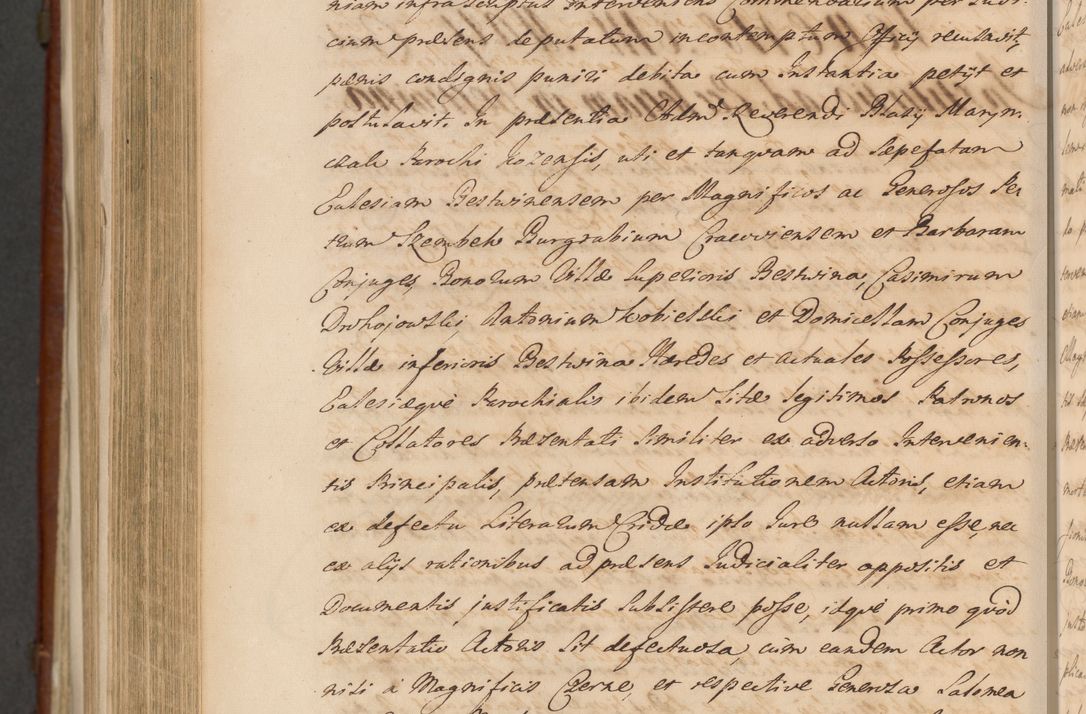 niam infrascriptus Interveniens Commendarium per Judi-
cium præsens deputatum in contemptum Officij recusavit,
pænis condignis puniri debita cum Instantia petijt et
postulavit. In præsentia Adm Reverendi Blasij Maryn-
Parochi Kozensis, uti et tanquam ad sæpefatam
Eclesiam Bestwinensem per Magnificos ac Generosos Pe-
trum Szembek Burgrabium Cracoviensem et Barbaram
Conjuges, Bonorum Villæ Superioris Bestwina, Casimirum
Drohojowski, Antonium Kobielski et Domicellam Conjuges
Villæ inferioris Bestwina Hæredes et actuales Possessores,
Eclesiæqvè Parochialis ibidem Sitæ legitimos Patronos
et Collatores Præsentati Similiter ex adverso Intervenien-
tis Principalis, prætensam Institutionem Actoris, etiam
ex defectu Literarum Cridæ ipso Jure nullam esse, nec
ex alijs rationibus ad præsens Judicialiter oppositis et
Documentis justificatis Subsistere posse, idqvè primo qvòd
Præsentatio Actoris Sit defectuosa, cum eandem Actor non
nisi à Magnificis Czerne, et respective Generosa Salomea